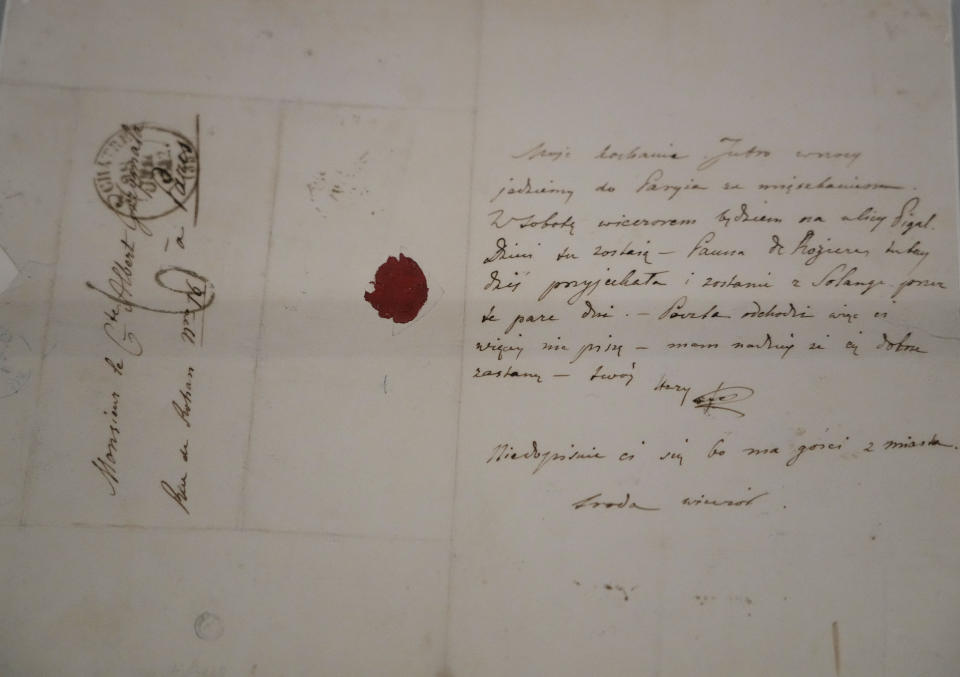 Moje kochanie Jutro
jedziemy do Paryża ze
W Sobotę wieczorem będziem na ulicy Pigal.
Dzieci tu zostają — Panna de Rozieres tutaj
dziś przyjechała i zostanie z Solange przez
te parę dni. — Poczta odchodzi więc ci
więcej nie piszę — mam nadzieję że cię dobrze
zastanę — twój stary
ci się bo ma gości z miasta.
środa wieczór.
Monsieur le Cte Albert Grzymała
Rue de Rohan à Paris